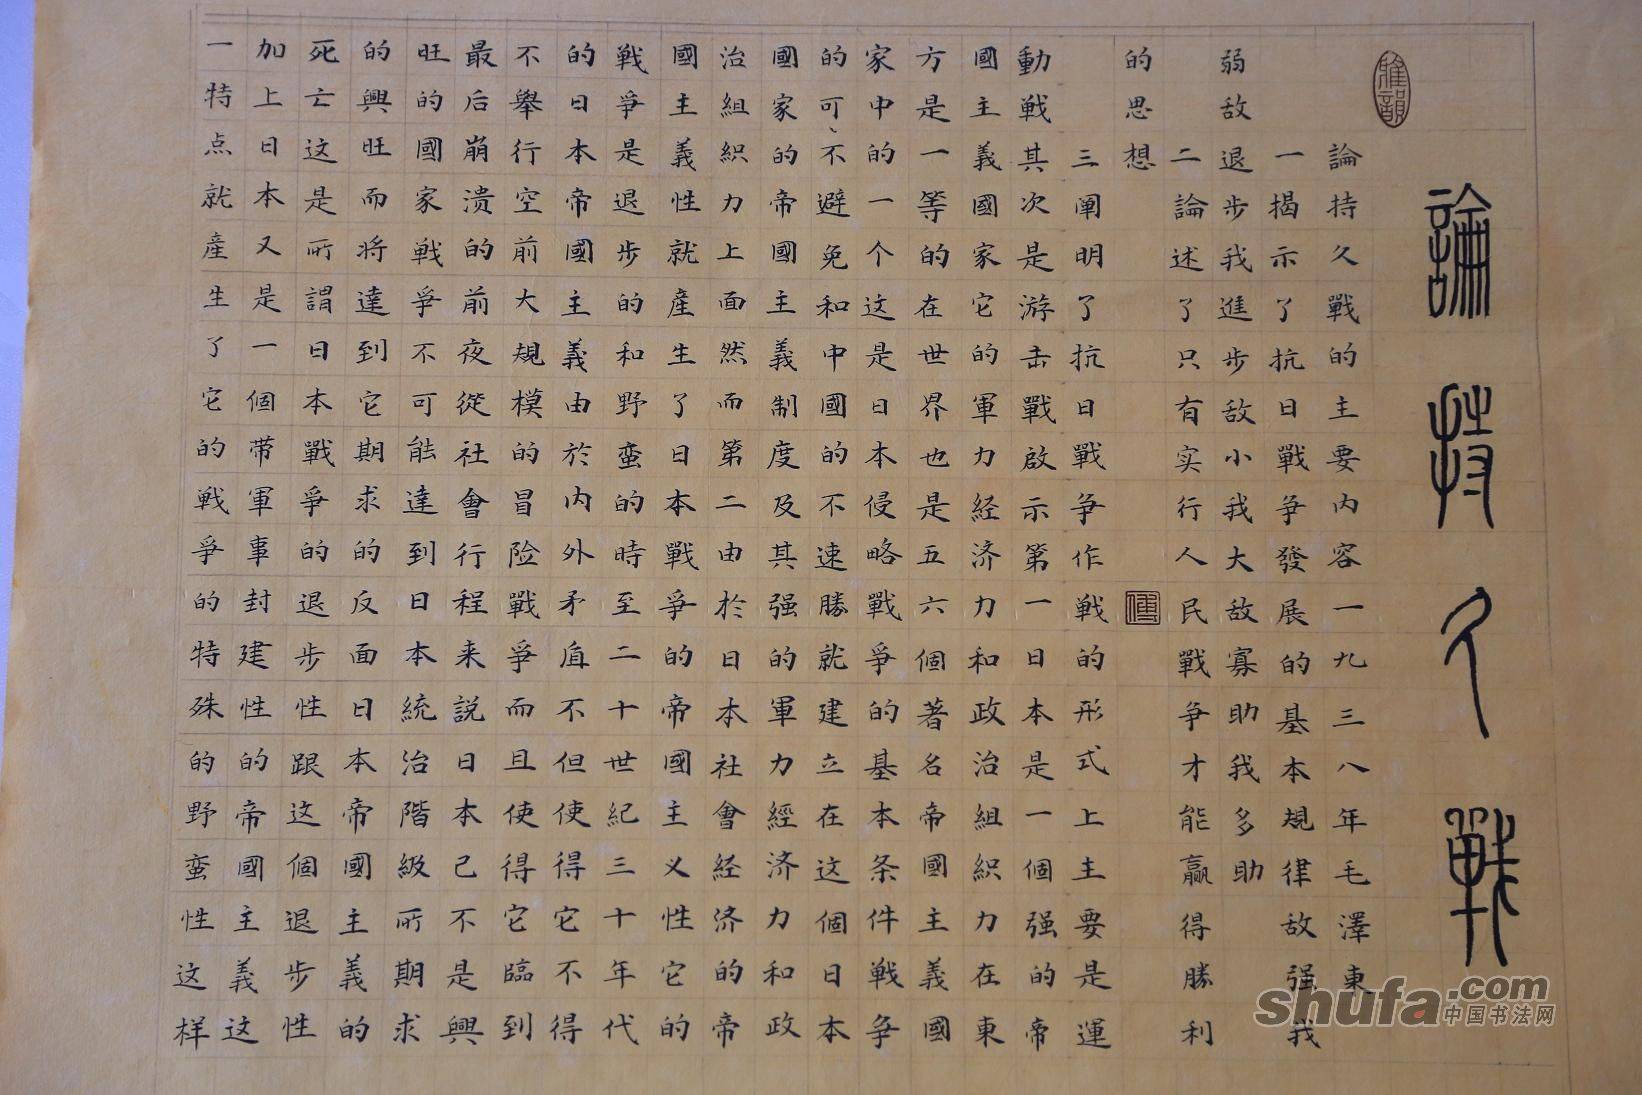 雅韻
論持久戰
論持久戰的主要内容一九三八年毛澤東
一揭示了抗日戰争發展的基本規律敌强我
弱敌退步我進步敌小我大敌寡助我多助
二論述了只有实行人民戰争才能贏得勝利
的思想
三阐明了抗日戰争作戰的形式上主要是運
動戰其次是游击戰啟示第一日本是一個强的帝
國主義國家它的軍力经济力和政治組织力在東
方是一等的在世界也是五六個著名帝國主義國
家中的一个这是日本侵略戰爭的基本条件戰争
的可、不避免和中國的不速勝就建立在这個日本
國家的帝國主義制度及其强的軍力經济力和政
治組織力上面然而第二由於日本社會经济的帝
國主義性就產生了日本戰爭的帝國主义性它的
戰爭是退步的和野蛮的時至二十世紀三十年代
的日本帝國主義由於内外矛盾不但使得它不得
不舉行空前大規模的冒险戰爭而且使得它臨到
最后崩溃的前夜從社會行程来説日本己不是興
旺的國家戰爭不可能達到日本統治階級所期求
的興旺而将達到它期求的反面日本帝國主義的
死亡这是所謂日本戰爭的退步性跟这個退步性
加上日本又是一個带軍事封建性的帝國主義这
一特点就產生了它的戰爭的特殊的野蛮性这样
shufa.com
中国书法网